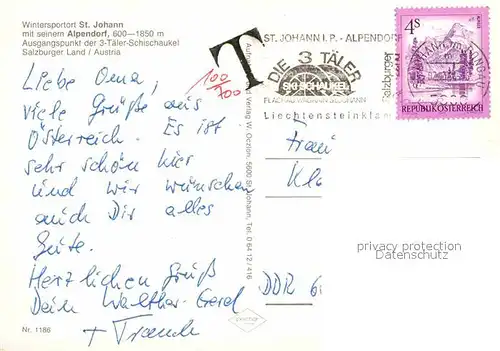 Wintersportort St. Johann
mit seinem Alpendorf, 600—1850 m
Ausgangspunkt der 3-Täler-Schischaukel
Salzburger Land / Austria
Liebe Oma,
viele Grüße aus
Österreich. Es ist
sehr schön hier
und wir wünschen
auch Dir alles
Gute.
Herzlichen Gruß
Dein Walther-Gerd
+ Traude
Nr. 1186
T
100
700
Verlag W. Oczlon, 5600 St. Johann, Tel. 0 64 12 / 416
ST. JOHANN I. P. - ALPENDORF
DIE 3 TÄLER
SKI-SCHAUKEL
FLACHAU WAGRAIN ST. JOHANN
Liechtensteinklam
Salzburger
4 S
REPUBLIK ÖSTERREICH
Frau
Kl
DDR 6
privacy protection
Datenschutz